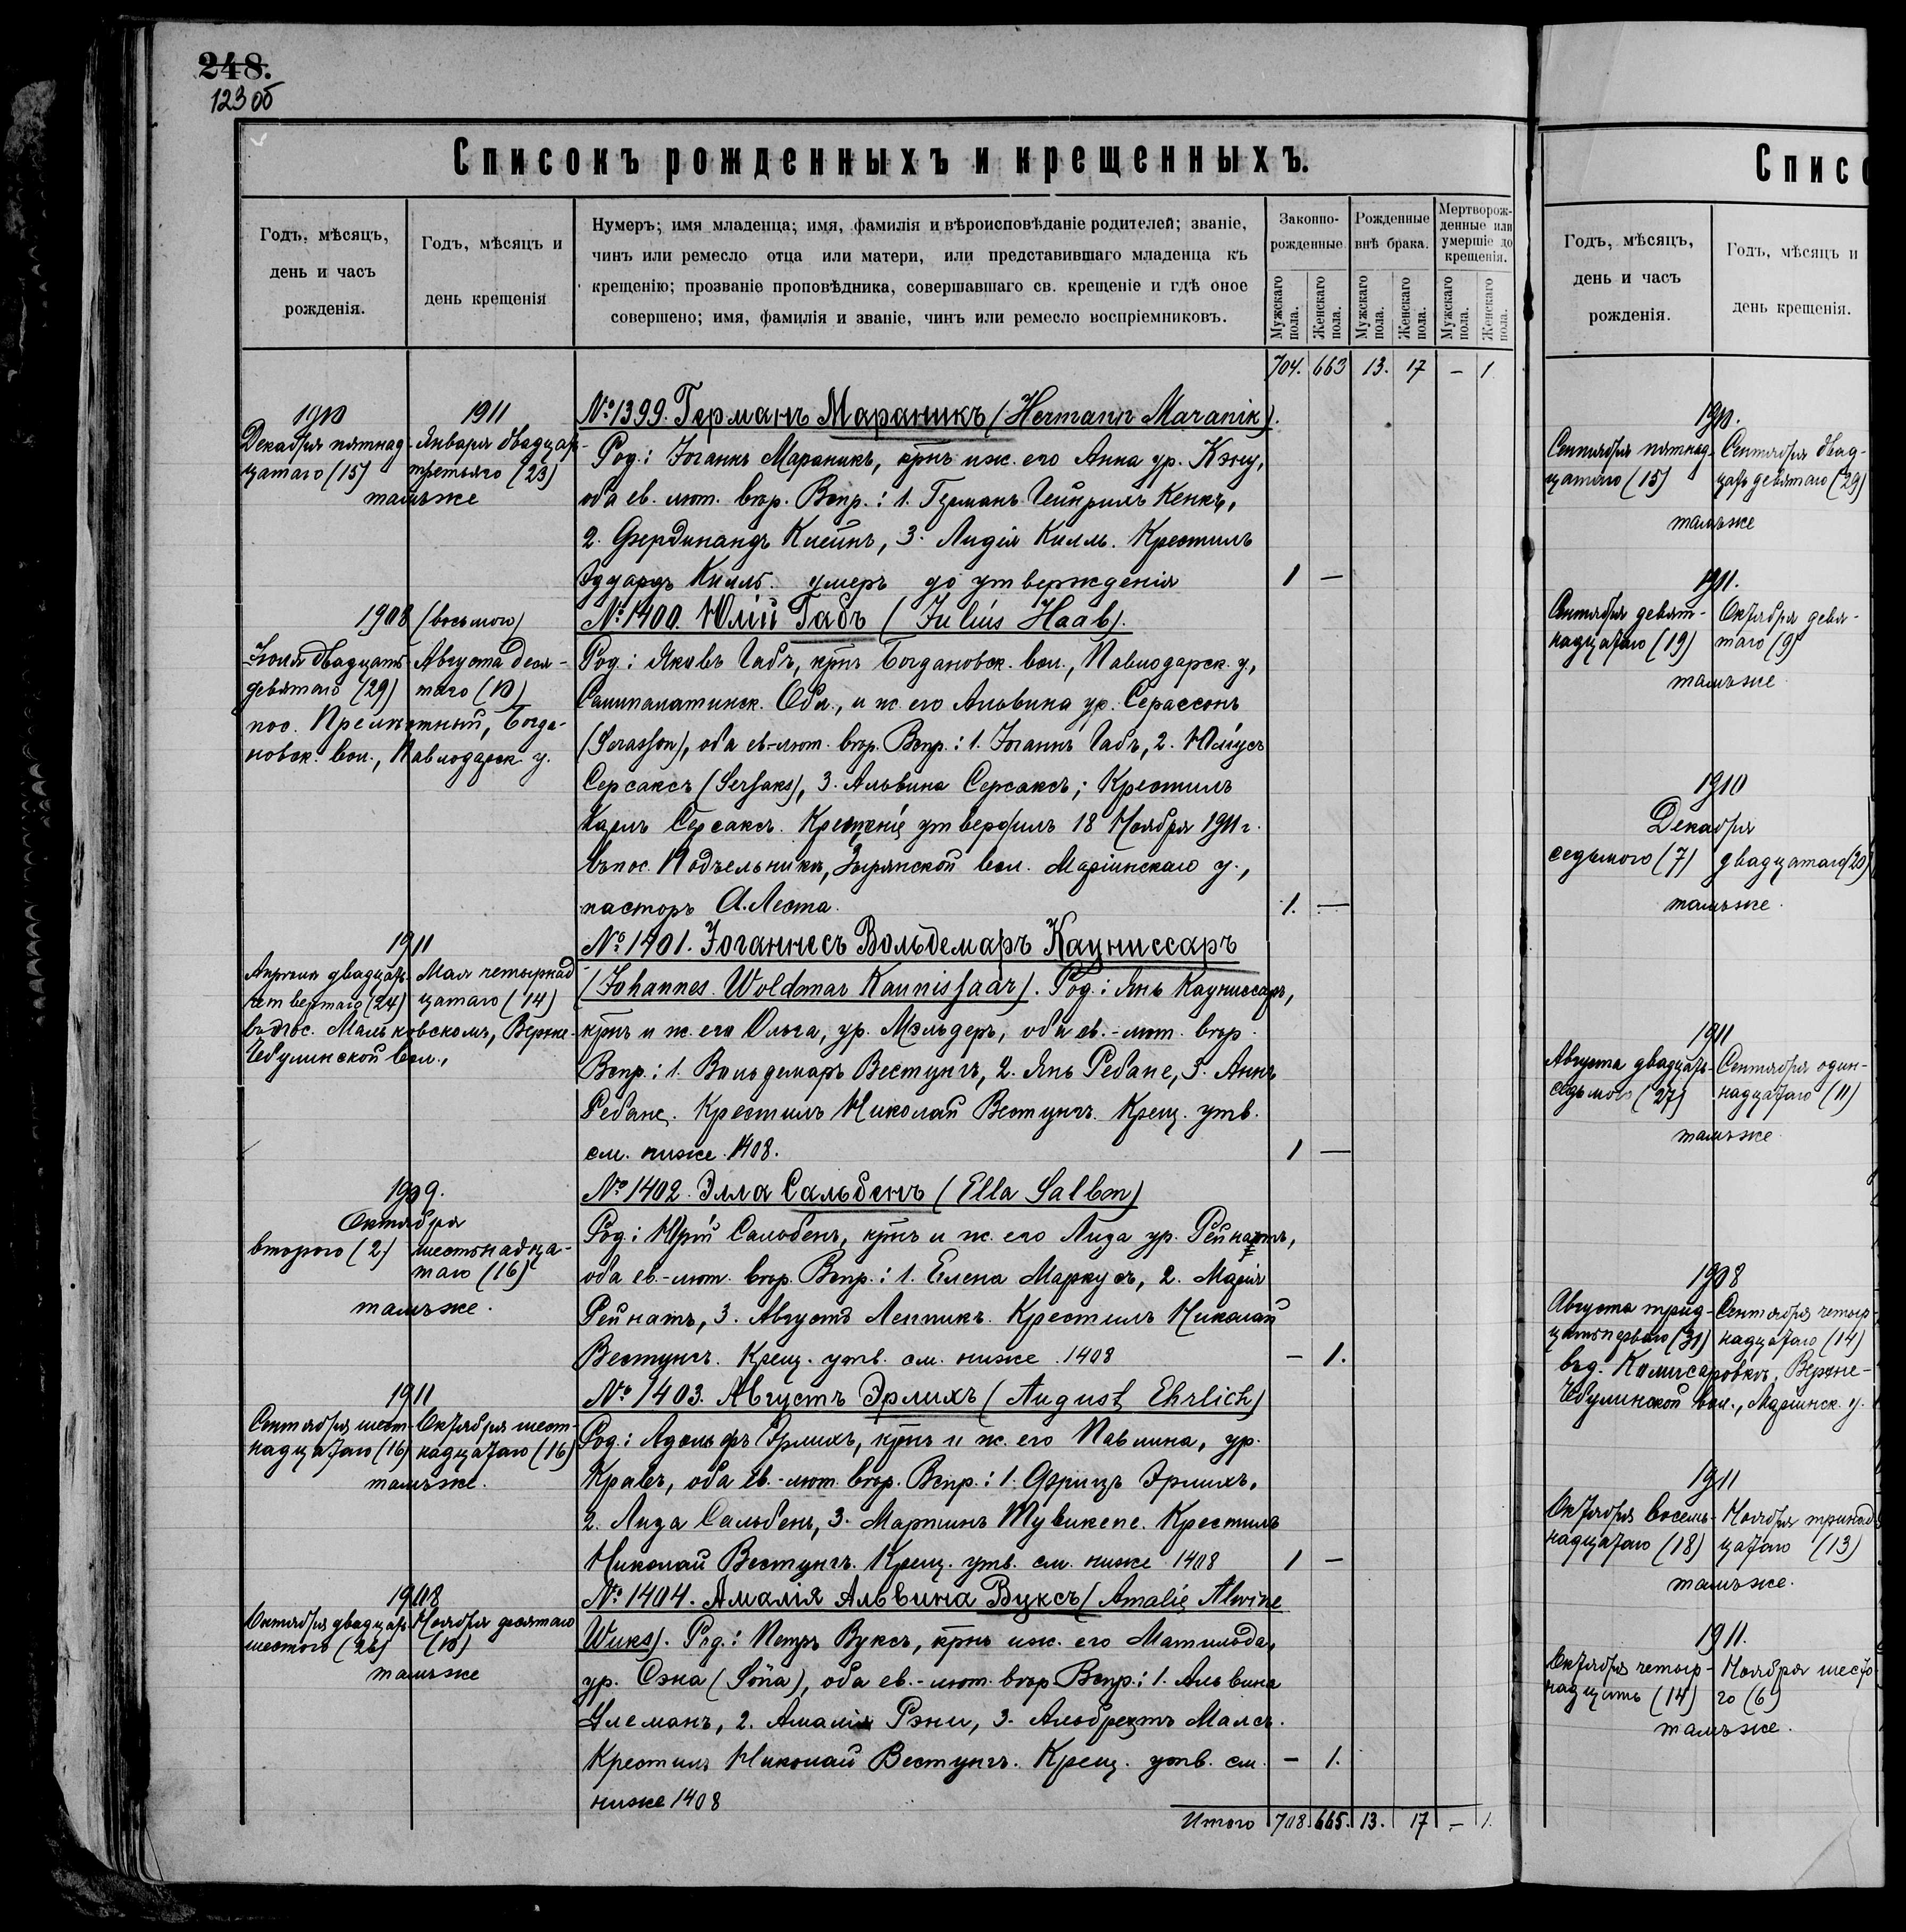 248.
123 об
Списокъ рожденныхъ и крещенныхъ.
Годъ, мѣсяцъ,
день и часъ
рожденія.
Годъ, мѣсяцъ и
день крещенія
Нумеръ; имя младенца; имя, фамилія и вѣроисповѣданіе родителей; званіе,
чинъ или ремесло отца или матери, или представившаго младенца къ
крещенію; прозваніе проповѣдника, совершавшаго св. крещеніе и гдѣ оное
совершено; имя, фамилія и званіе, чинъ или ремесло воспріемниковъ.
Законно-
рожденные
Рожденные
внѣ брака.
Мертворож-
денные или
умершіе до
крещенія.
Мужскаго пола.
Женскаго пола.
Мужскаго пола.
Женскаго пола.
Мужскаго пола.
Женскаго пола.
704. 663 13. 17 – 1
1910
Декабря пятнад-
цатаго (15)
1911
Января двадцать
третьяго (23)
тамъже
№ 1399. Германъ Мараникъ (Hermann Maranik).
Род.: Іоганнъ Мараникъ, крнъ и ж. его Анна ур. Кэну,
оба ев. лют. вѣр. Вспр.: 1. Германъ Гейнрихъ Кенкъ,
2. Фердинандъ Клейнъ, 3. Лидія Килль. Крестилъ
Эдуардъ Килль. умеръ до утвержденія
1 —
1908 (восьмого)
Іюля двадцать
девятаго (29)
Августа деся-
таго (10)
пос. Прелистный, Богда-
новск. вол., Павлодарск. у.
№ 1400. Юлій Габъ (Julius Haab).
Род.: Яковъ Габъ, крнъ Богдановск. вол., Павлодарск. у,
Семипалатинск. Обл., и ж. его Альвина ур. Серассонъ
(Serasson), оба ев.-лют. вѣр. Вспр.: 1. Іоганнъ Габъ, 2. Юліусъ
Серсаксъ (Sersaks), 3. Альвина Серсаксъ; Крестилъ
Карлъ Серсаксъ. Крещеніе утвердилъ 18 Ноября 1911 г.
въ пос. Подъельникъ, Зырянской вол. Маріинскаго у.,
пасторъ А. Леста.
1. —
1911
Апрѣля двадцать
четвертаго (24)
Мая четырнад
цатаго (14)
въ пос. Мальковскомъ, Верхне-
Чебулинской вол.,
№ 1401. Іоганнесъ Вольдемаръ Кауниссаръ
(Johannes Woldmar Kaunissaar). Род.: Янъ Кауниссаръ,
крнъ и ж. его Ольга, ур. Мэльдеръ, оба ев.-лют. вѣр.
Вспр.: 1. Вольдемаръ Вестунгъ, 2. Янъ Ребане, 3. Анна
Ребане. Крестилъ Николай Вестунгъ. Крещ. утв.
см. ниже 1408.
1 —
1909.
Октября
второго (2)
шестнадца-
таго (16)
тамъже.
№ 1402. Элла Сальбенъ (Ella Salbm)
Род.: Юрій Сальбенъ, крнъ и ж. его Лиза ур. Рейнатъ,
оба ев.-лют. вѣр. Вспр.: 1. Елена Маркусъ, 2. Марія
Рейнатъ, 3. Августъ Леппикъ. Крестилъ Николай
Вестунгъ. Крещ. утв. см. ниже 1408
— 1.
1911
Сентября шест-
надцатаго (16)
Октября шест-
надцатаго (16)
тамъже.
№ 1403. Августъ Эрлихъ (August Ehrlich)
Род.: Адольфъ Эрлихъ, крнъ и ж. его Павлина, ур.
Кравъ, оба ев.-лют. вѣр. Вспр.: 1. Фрицъ Эрлихъ,
2. Лиза Сальбенъ, 3. Мартинъ Тувикене. Крестилъ
Николай Вестунгъ. Крещ. утв. см. ниже 1408
1 —
1908
Октября двадцать
шестого (26)
Ноября десятаго
(10)
тамъже
№ 1404. Амалія Альвина Вуксъ (Amalie Alwine
Wuks). Род.: Петръ Вуксъ, крнъ и ж. его Матильда,
ур. Сэна (Söna), оба ев.-лют. вѣр Вспр.: 1. Альвина
Улеманъ, 2. Амалія Рэни, 3. Альбрехтъ Малсъ.
Крестилъ Николай Вестунгъ. Крещ. утв. см.
ниже 1408
— 1.
Итого 708. 665. 13. 17 – 1.
Списо
Годъ, мѣсяцъ,
день и часъ
рожденія.
Годъ, мѣсяцъ и
день крещенія.
1910.
Сентября пятнад-
цатаго (15)
Сентября двад-
цать девятаго (29)
тамъже
1911.
Сентября девят-
надцатаго (19)
Октября девя-
таго (9)
тамъже
1910
Декабря
седьмого (7)
двадцатаго (20)
тамъже.
1911
Августа двадцать
седьмого (27)
Сентября один-
надцатаго (11)
тамъже.
1908
Августа трид-
цатьперваго (31)
Сентября четыр-
надцатаго (14)
въ д. Комисаровкѣ, Верхне-
Чебулинской вол., Маріинск. у.
1911
Октября восем-
надцатаго (18)
Ноября тринад
цатаго (13)
тамъже.
1911.
Октября четыр-
надцать (14)
Ноября шесто
го (6)
тамъже.